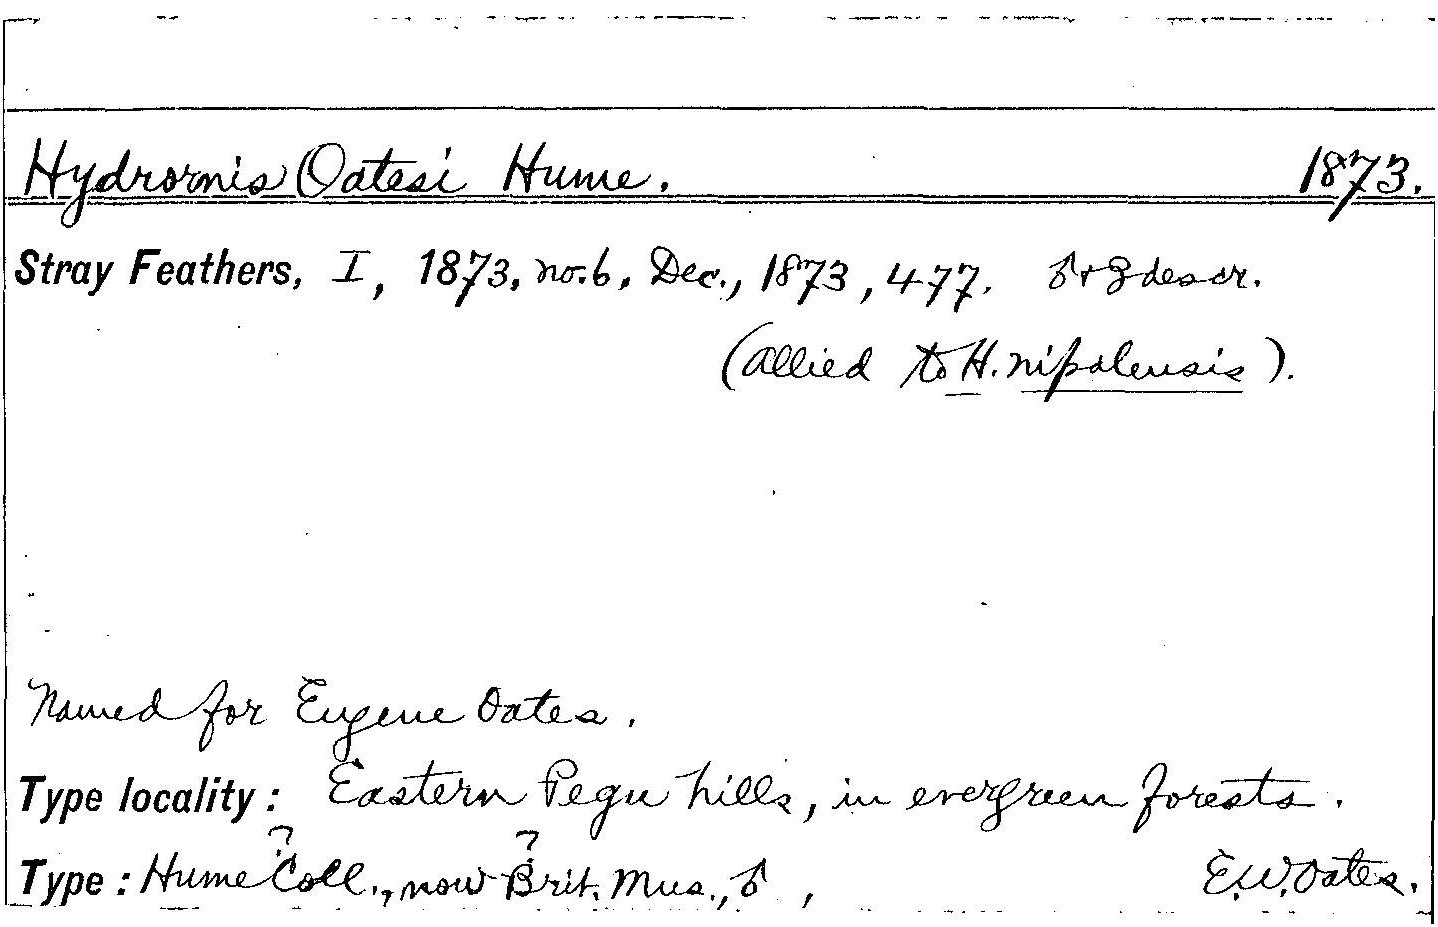 Hydrornis Oatesi Hume. 1873.
Stray Feathers, I, 1873, no. 6, Dec., 1873, 477. ♂ + ♀ descr.
(allied to H. nipalensis).
Named for Eugene Oates.
Type locality: Eastern Pegu hills, in evergreen forests.
? ?
Type: Hume Coll., now Brit. Mus., ♂, E.W. Oates.